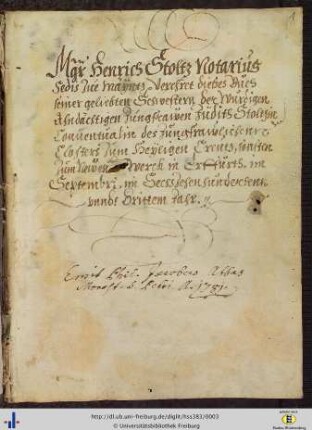 Mgr Henrich Stoltz Notarius
Sedis zue Maÿntz Verehret diebes Buch
seiner geliebten Schwestern der Würdigen
Andächtigen Jungfrawen Judith Stoltzin
Conventualin des Jungfrawe
Closters zum Heyligen Creutz, sonsten
zum Newen werck in Erffurth. im
Septembri. im Sechszehen hundersten
vnndt Drittem Jahr.
Emit Phil. Jacobus Abbas
Monast. S. Petri A. 1781.
http://dl.ub.uni-freiburg.de/diglit/hs383/0003
© Universitätsbibliothek Freiburg